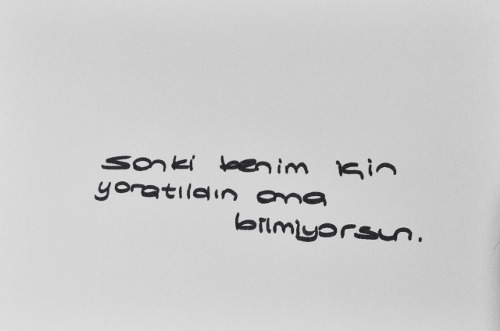 Sanki benim için
yaratıldın ama
bilmiyorsun.